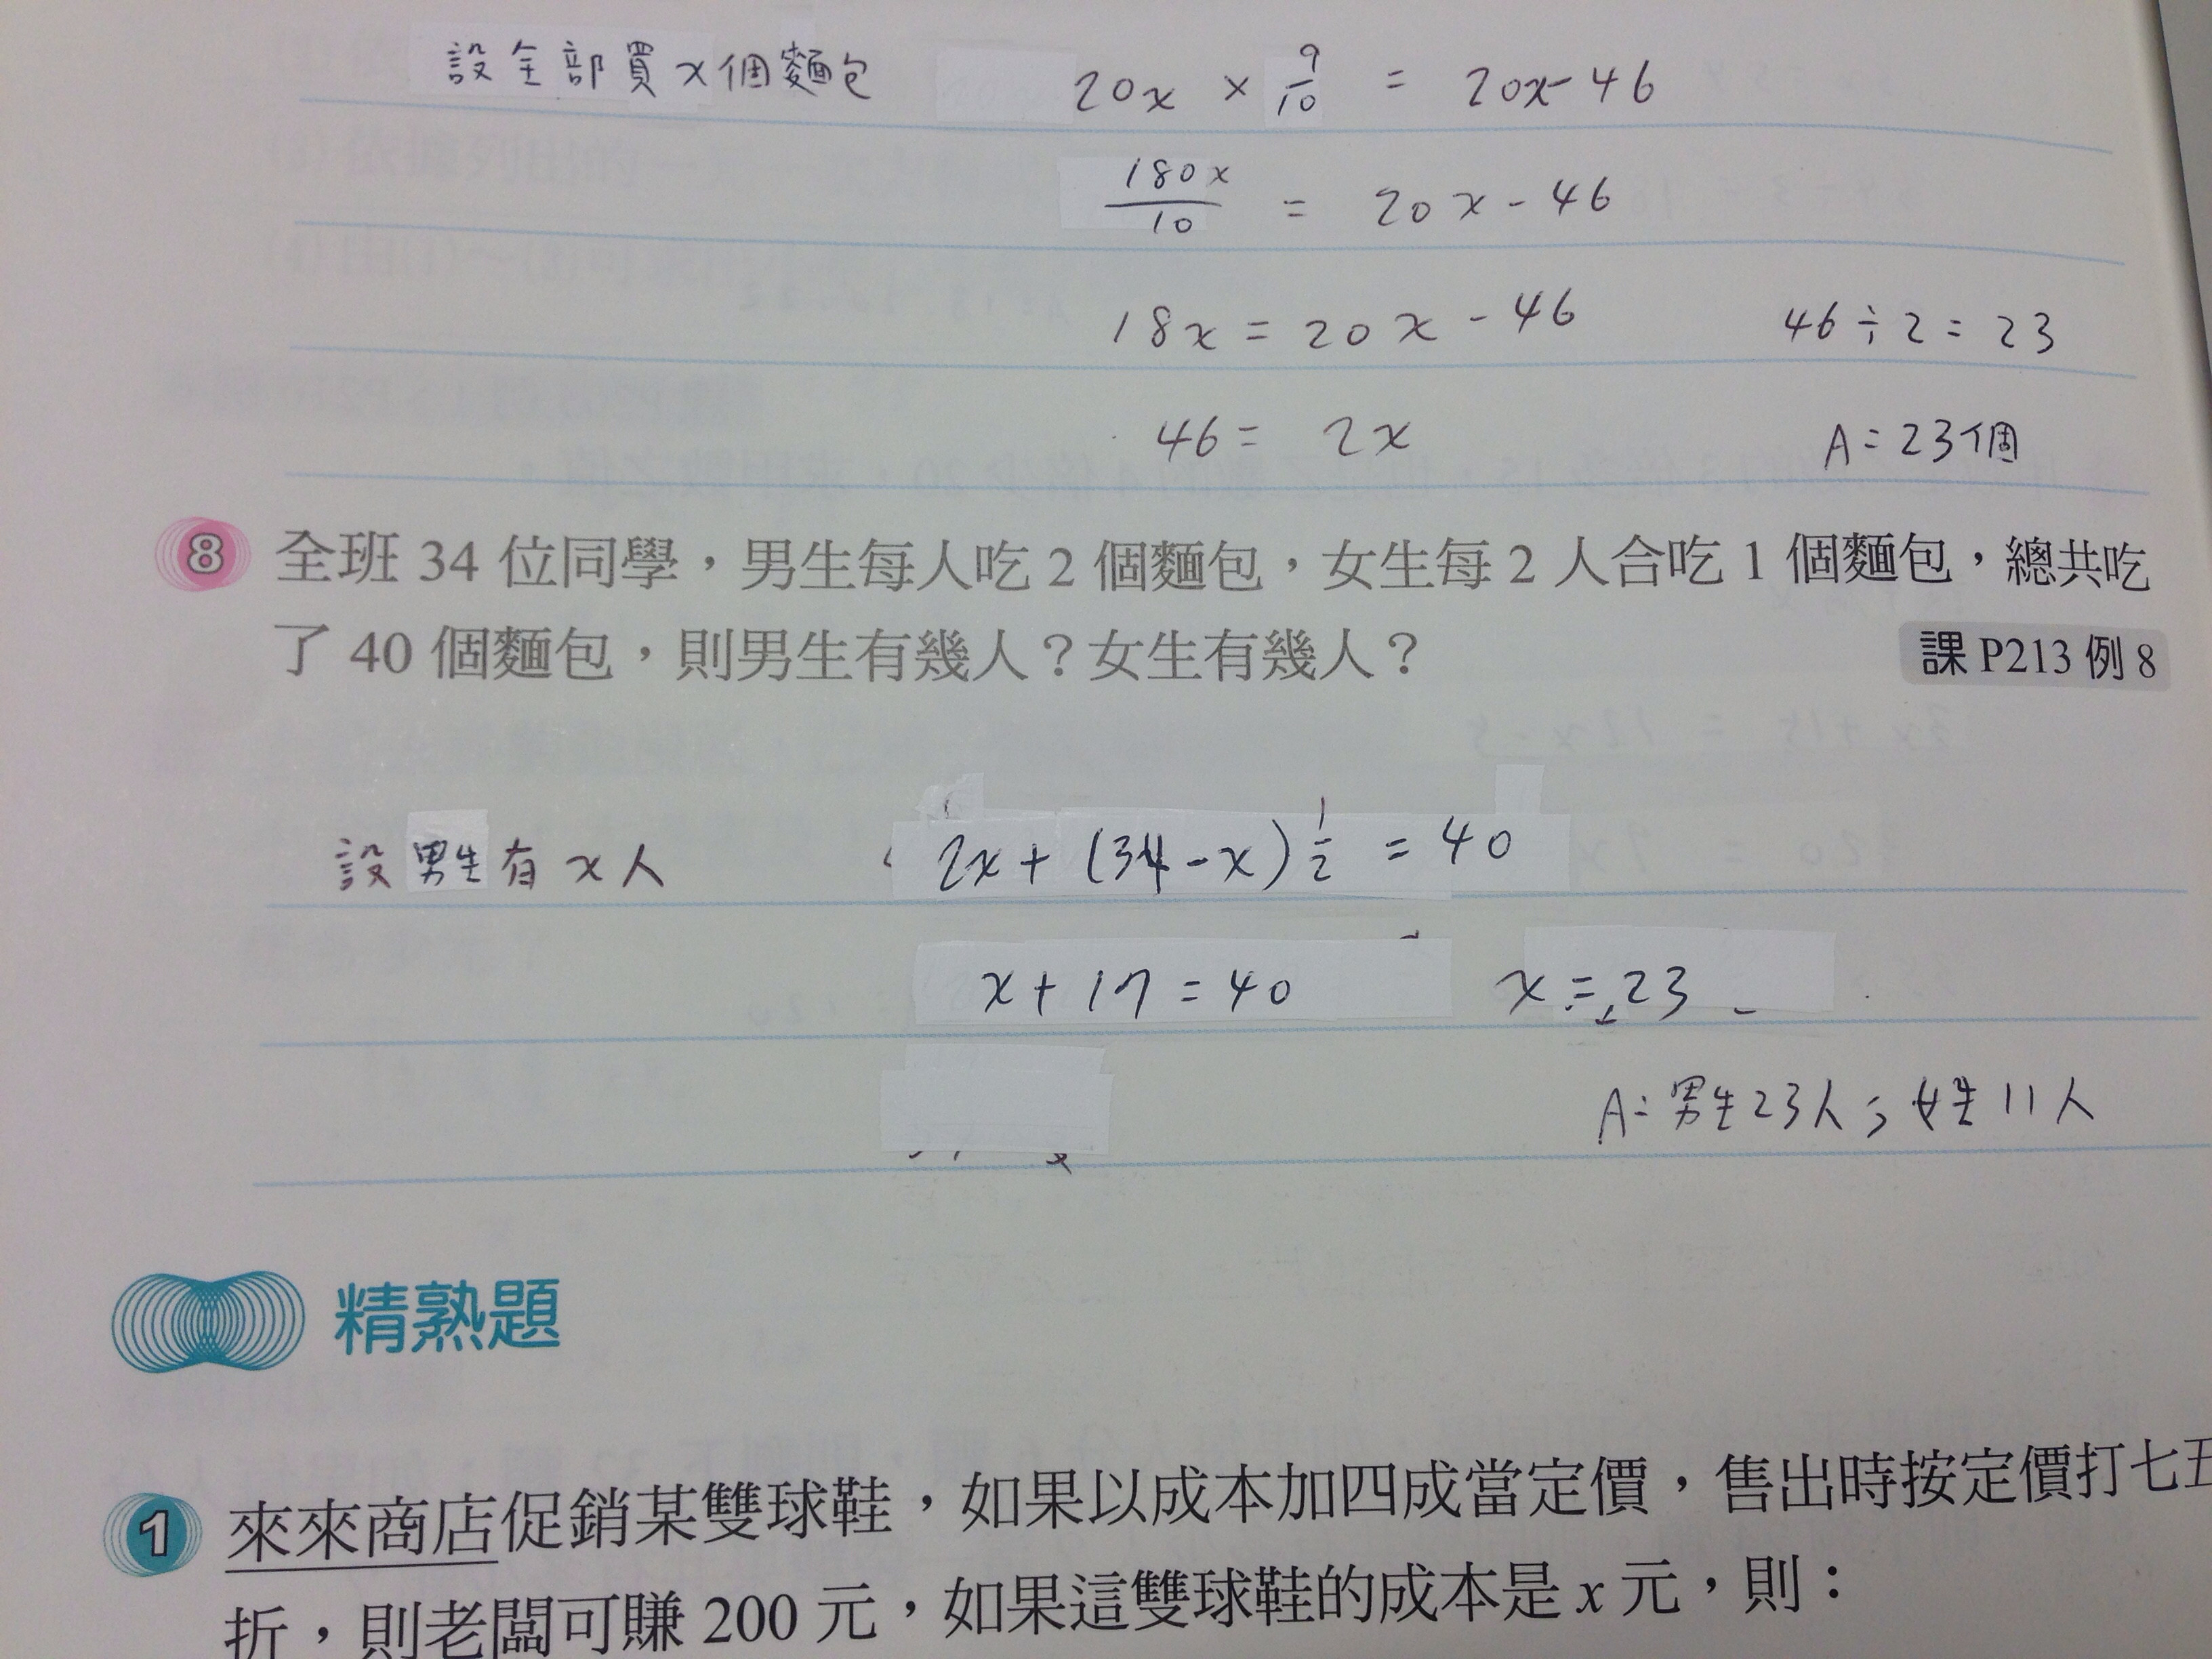 設全部買x個麵包 20x × 9/10 = 20x-46
180x/10 = 20x-46
18x = 20x-46 46÷2=23
46= 2x A:23個
8 全班 34 位同學，男生每人吃 2 個麵包，女生每 2 人合吃 1 個麵包，總共吃
了 40 個麵包，則男生有幾人？女生有幾人？ 課 P213 例 8
設男生有x人 2x+(34-x)1/2=40
x+17=40 x=23
A:男生23人；女生11人
精熟題
1 來來商店促銷某雙球鞋，如果以成本加四成當定價，售出時按定價打七五
折，則老闆可賺 200 元，如果這雙球鞋的成本是 x 元，則：